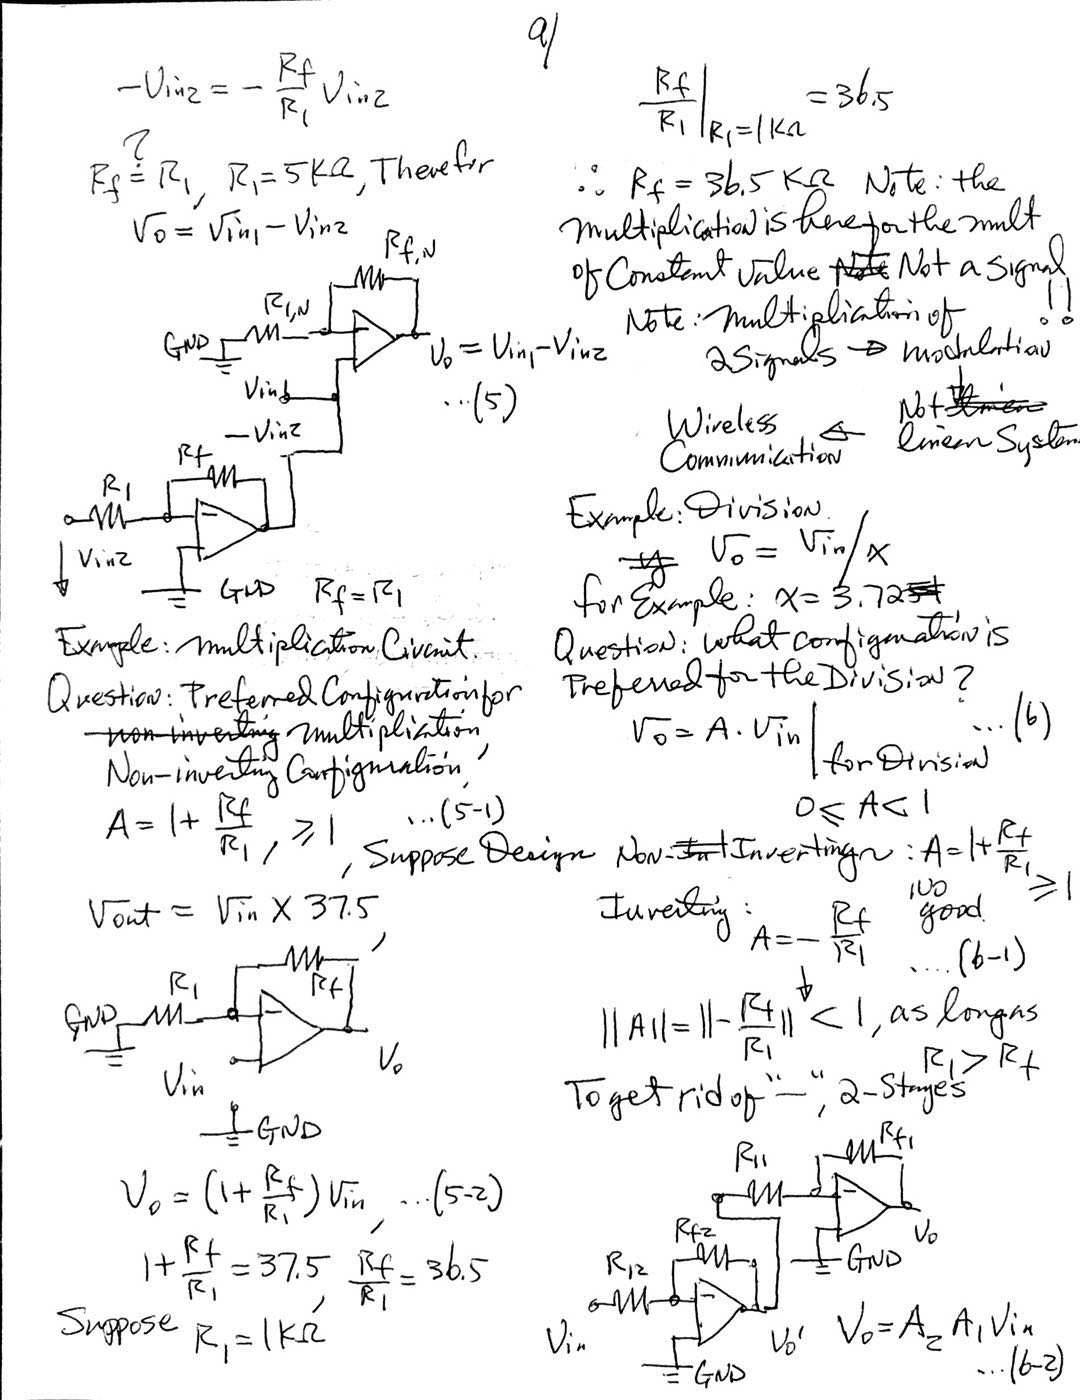 a/
-Vin2 = - Rf/R1 Vin2
?
Rf = R1, R1 = 5KΩ, Therefor
Vo = Vin1 - Vin2
Rf,N
R1,N
GND
Vo = Vin1 - Vin2
...(5)
Vin1
-Vin2
Rf
R1
Vin2
GND Rf = R1
Example: Multiplication Circuit.
Question: Preferred Configuration for
non-inverting multiplication,
Non-inverting Configuration,
A = 1 + Rf/R1, ≥ 1 ...(5-1)
, Suppose Design
Vout = Vin X 37.5,
R1
Rf
GND
Vin
Vo
GND
Vo = (1 + Rf/R1) Vin, ...(5-2)
1 + Rf/R1 = 37.5, Rf/R1 = 36.5
Suppose R1 = 1KΩ
Rf/R1 | R1 = 1KΩ = 36.5
∴ Rf = 36.5 KΩ Note: the
multiplication is here for the mult
of Constant value Note Not a signal!!
Note: multiplication of
2 Signals → modulation
↓
Not
Wireless ← linear System
Communication
Example: Division.
Vo = Vin/x
for Example: x = 3.72,
Question: what configuration is
Preferred for the Division?
Vo = A · Vin | for Division ...(6)
0 ≤ A < 1
Non-Inverting: A = 1 + Rf/R1 ≥ 1
no good
Inverting: A = - Rf/R1
....(6-1)
↓
||A|| = ||- Rf/R1|| < 1, as long as
R1 > Rf
To get rid of "-", 2-Stages
Rf1
R11
Vo
GND
Rf2
R12
Vin
Vo'
GND
Vo = A2 A1 Vin
...(6-2)